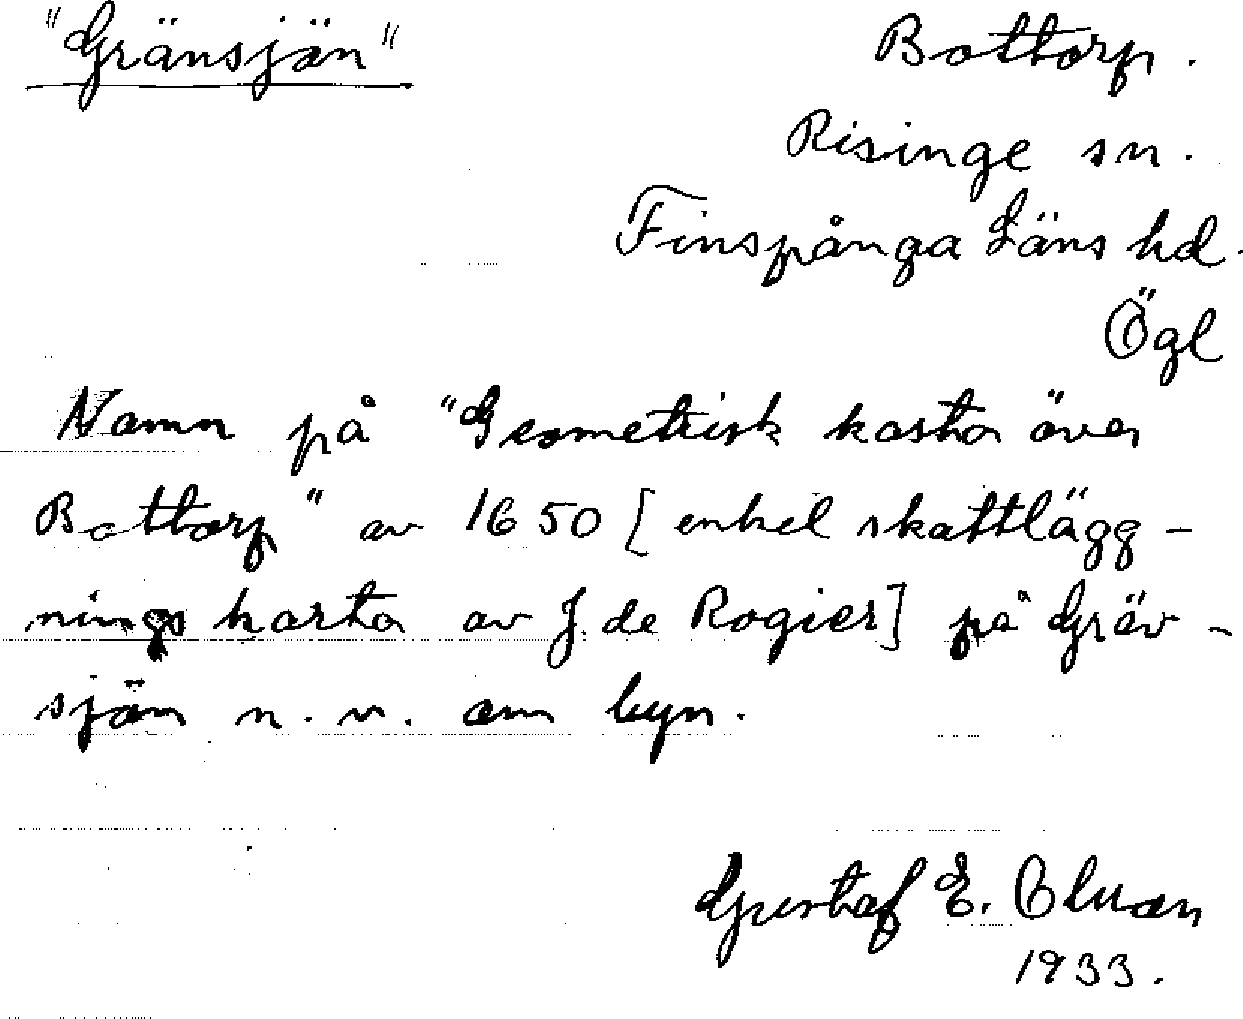 "Gränsjön"
Bottorp.
Risinge sn.
Finspånga Läns hd.
Ögl
Namn på "Geometrisk karta över
Bottorp" av 1650 [enkel skattlägg-
ningskarta av J. de Rogier] på Gräv-
sjön n.v. om byn.
Gustaf E. Olsson
1933.